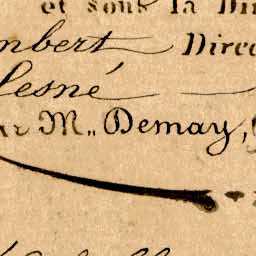 et sous la Di
mbert Direc
lesné
M.. Demay,